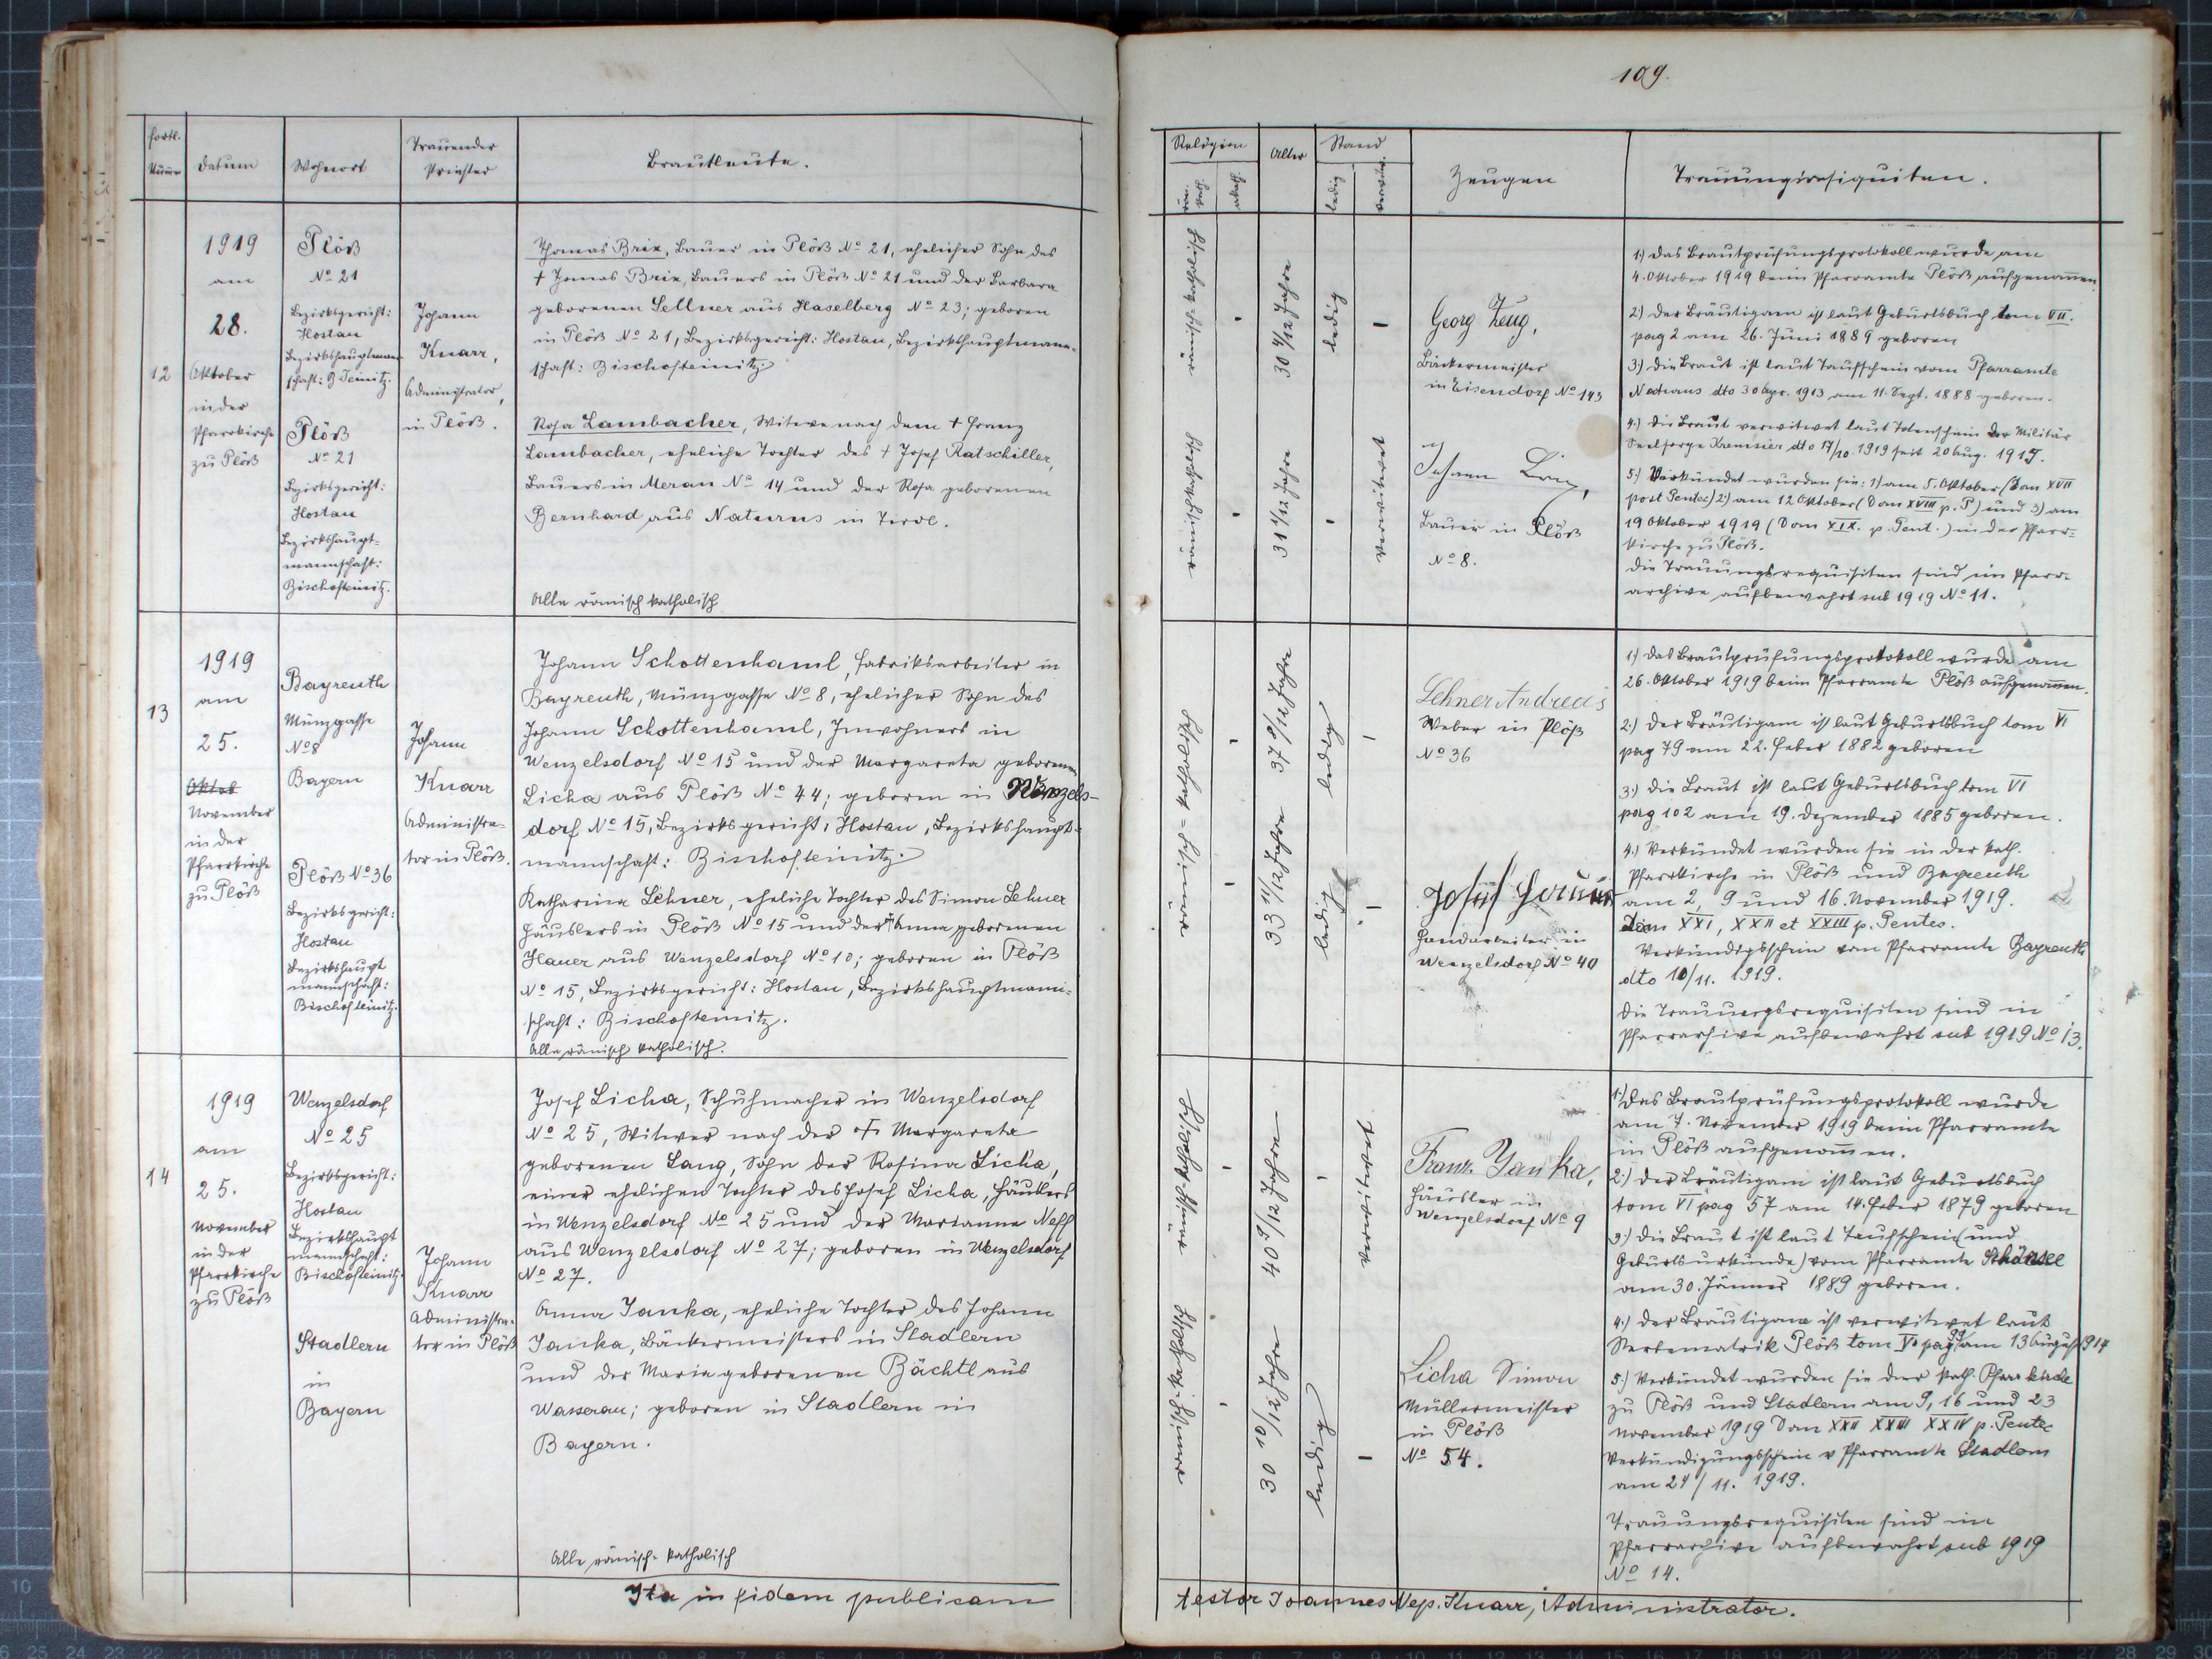 109.
fortl.
Numer
Datum
Wohnort
Trauender
Priester
Brautleute.
12
1919
am
28.
Oktober
in der
Pfarrkirche
zu Plöß
Plöß
No 21
Bezirksgericht:
Hostau
Bezirkshauptmann-
schaft: B Teinitz.
Plöß
No 21
Bezirksgericht:
Hostau
Bezirkshaupt=
mannschaft:
Bischofteinitz.
Johann
Knarr,
Administrator,
in Plöß.
Thomas Brix, Bauer in Plöß No 21, ehelicher Sohn des
† Thomas Brix, Bauers in Plöß No 21 und der Barbara
geborenen Sellner aus Haselberg No 23; geboren
in Plöß No 21, Bezirksgericht: Hostau, Bezirkshauptmann-
schaft: Bischofteinitz.
Rosa Lambacher, Witwe nach dem † Franz
Lambacher, eheliche Tochter des † Josef Ratschiller,
Bauers in Meran No 14 und der Rosa geborenen
Bernhard aus Naturns in Tirol.
Alle römisch katholisch
13
1919
am
25.
Oktob
November
in der
Pfarrkirche
zu Plöß
Bayreuth
Münzgasse
No 8
Bayern
Plöß No 36
Bezirksgericht:
Hostau
Bezirkshaupt
mannschaft:
Bischofteinitz.
Johann
Knarr
Administra-
tor in Plöß.
Johann Schottenhaml, Fabriksarbeiter in
Bayreuth, Münzgasse No 8, ehelicher Sohn des
Johann Schottenhaml, Inwohners in
Wenzelsdorf No 15 und der Margareta geborenen
Licha aus Plöß No 44; geboren in Wenzels-
dorf No 15, Bezirksgericht: Hostau, Bezirkshaupt-
mannschaft: Bischofteinitz.
Katharina Lehner, eheliche Tochter des Simon Lehner
Häuslers in Plöß No 15 und der † Anna geborenen
Hauer aus Wenzelsdorf No 10; geboren in Plöß
No 15, Bezirksgericht: Hostau, Bezirkshauptmann=
schaft: Bischofteinitz.
Alle römisch katholisch.
14
1919
am
25.
November
in der
Pfarrkirche
zu Plöß
Wenzelsdorf
No 25
Bezirksgericht:
Hostau
Bezirkshaupt
mannschaft:
Bischofteinitz.
Stadlern
in
Bayern
Johann
Knarr
Administra-
tor in Plöß
Josef Licha, Schuhmacher in Wenzelsdorf
No 25, Witwer nach der † Margareta
geborenen Lang, Sohn der Rosina Licha,
einer ehelichen Tochter des Josef Licha, Häuslers
in Wenzelsdorf No 25 und der Marianna Neff
aus Wenzelsdorf No 27; geboren in Wenzelsdorf
No 27.
Anna Janka, eheliche Tochter des Johann
Janka, Bäckermeisters in Stadlern
und der Maria geborenen Bächtl aus
Wasserau; geboren in Stadlern in
Bayern.
Alle römisch-katholisch
Ita in fidem publicam
Religion
Alter
Stand
röm.
kath.
ledig
verwitw.
Zeugen
Trauungsrequisiten.
römisch-katholisch
30 4/12 Jahre
ledig
römischkatholisch
31 1/12 Jahre
verwitwet
Georg Zeug,
Bäckermeister
in Eisendorf No 143
Johann
Bauer in Plöß
No 8.
1.) Das Brautprüfungsprotokoll wurde am
4. Oktober 1919 beim Pfarramte Plöß aufgenommen
2.) Der Bräutigam ist laut Geburtsbuch tom VII.
pag 2 am 26. Juni 1889 geboren
3) die Braut ist laut Taufschein vom Pfarramte
Naturns dto 30 Apr. 1913 am 11. Sept. 1888 geboren.
4.) Die Braut verwitwet laut Totenschein der Militär
Seelsorge Kremsier dto 17/10 1919 seit 20 Aug. 1915.
5.) Verkündet wurden sie: 1) am 5. Oktober (Dom XVII
post Pentec) 2.) am 12 Oktober (Dom XVIII p. P) und 3) am
19 Oktober 1919 (Dom XIX. p. Pent.) in der Pfarr=
kirche zu Plöß.
Die Trauungsrequisiten sind im Pfarr=
archive aufbewahrt sub 1919 No 11.
römisch=katholisch
37 9/12 Jahre
ledig
33 11/12 Jahre
ledig
Lehner Andreas
Weber in Plöß
No 36
Josef
Handarbeiter in
Wenzelsdorf No 40
1.) Das Brautprüfungsprotokoll wurde am
26. Oktober 1919 beim Pfarramte Plöß aufgenommen.
2.) Der Bräutigam ist laut Geburtsbuch tom VI
pag 79 am 22. Feber 1882 geboren
3.) Die Braut ist laut Geburtsbuch tom VI
pag 102 am 19. Dezember 1885 geboren.
4.) Verkündet wurden sie in der kath.
Pfarrkirche in Plöß und Bayreuth
am 2, 9 und 16. November 1919.
Dom XXI, XXII et XXIII p. Pentec.
Verkündigsschein vom Pfarramte Bayreuth
dto 10/11. 1919.
Die Trauungsrequisiten sind in
Pfarrarchive aufbewahrt sub 1919 No 13.
römisch-katholisch
40 9/12 Jahre
verwitwet
römisch-katholisch
30 10/12 Jahre
ledig
Franz Janka,
Häusler in
Wenzelsdorf No 9
Licha Simon
Müllermeister
in Plöß
No 54.
1.) Das Brautprüfungsprotokoll wurde
am 7. November 1919 beim Pfarramte
in Plöß aufgenommen.
2.) der Bräutigam ist laut Geburtsbuch
tom VI pag 57 am 14. Feber 1879 geboren
3.) die Braut ist laut Taufschein (und
Geburtsurkunde) vom Pfarramte Schönsee
am 30. Jänner 1889 geboren.
4.) der Bräutigam ist verwitwet laut
Sterbematrik Plöß tom V pag 99 am 13 August 1914
5.) Verkündet wurden sie der kath. Pfarrkirche
zu Plöß und Stadlern am 9, 16 und 23
November 1919 Dom XXII XXIII XXIV p. Pentec
Verkündigungsschein v Pfarramte Stadlern
am 24/11. 1919.
Trauungsrequisiten sind im
Pfarrarchive aufbewahrt sub 1919
No 14.
testor Joannes Nep. Knarr, Administrator.